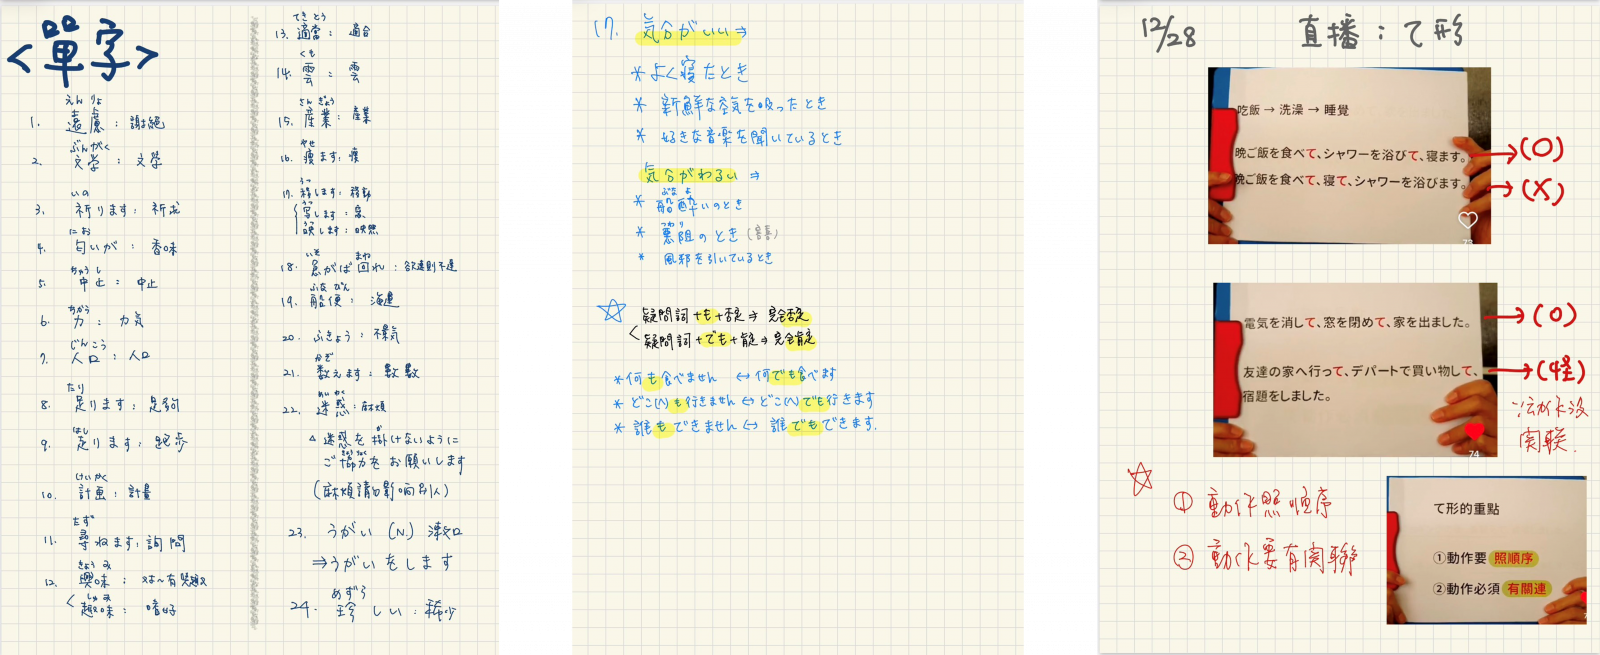 <單字>
えんりょ
1. 遠慮：謝絕
ぶんがく
2. 文学：文學
いの
3. 祈ります：祈求
にお
4. 匂いが：香味
ちゅうし
5. 中止：中止
ちから
6. 力：力氣
じんこう
7. 人口：人口
たり
8. 足ります：足夠
はし
9. 走ります：跑步
けいかく
10. 計画：計畫
たず
11. 尋ねます：詢問
きょうみ
12. 興味：対～有興趣
しゅみ
趣味：嗜好
てきとう
13. 適当：適合
くも
14. 雲：雲
さんぎょう
15. 産業：產業
やせ
16. 痩ます：瘦
うつ
17. 移します：移動
うつ
写します：寫
うつ
映します：映照
いそ まわ
18. 急がば回れ：欲速則不達
ふなびん
19. 船便：海運
20. ふきょう：不景氣
かぞ
21. 数えます：數數
めいわく
22. 迷惑：麻煩
△ 迷惑を掛けないように
ご協力をお願いします
(麻煩請勿影响別人)
23. うがい (N.) 漱口
⇒うがいをします
めずら
24. 珍しい：稀少
17. 気分がいい⇒
* よく寝たとき
* 新鮮な空気を吸ったとき
* 好きな音楽を聞いているとき
気分がわるい ⇒
ふなよ
* 船酔いのとき
つわり
* 悪阻のとき
* 風邪を引いているとき
☆ 疑問詞+も+否定⇒ 完全否定
疑問詞+でも+肯定⇒ 完全肯定
*何も食べません ↔ 何でも食べます
* どこ(へ)も行きません ↔ どこ(へ)でも行きます
* 誰もできません ↔ 誰でもできます.
12/28 直播：て形
吃飯 → 洗澡 → 睡覺
晩ご飯を食べて、シャワーを浴びて、寝ます。 →(O)
晩ご飯を食べて、寝て、シャワーを浴びます。 →(X)
73
電気を消して、窓を閉めて、家を出ました。 →(O)
友達の家へ行って、デパートで買い物して、 →(怪)
宿題をしました。
動作沒
関联.
74
☆
① 動作照順序
② 動作要有関聯
て形的重點
①動作要 照順序
②動作必須 有關連